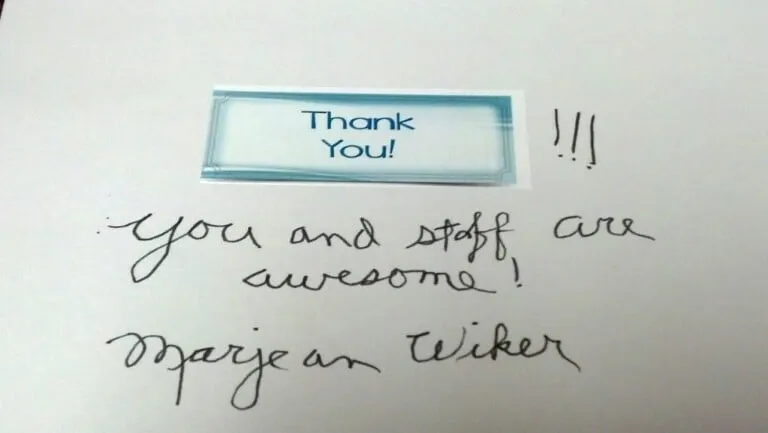 Thank
You!
!!!
You and staff are
awesome!
Marjean Wiker